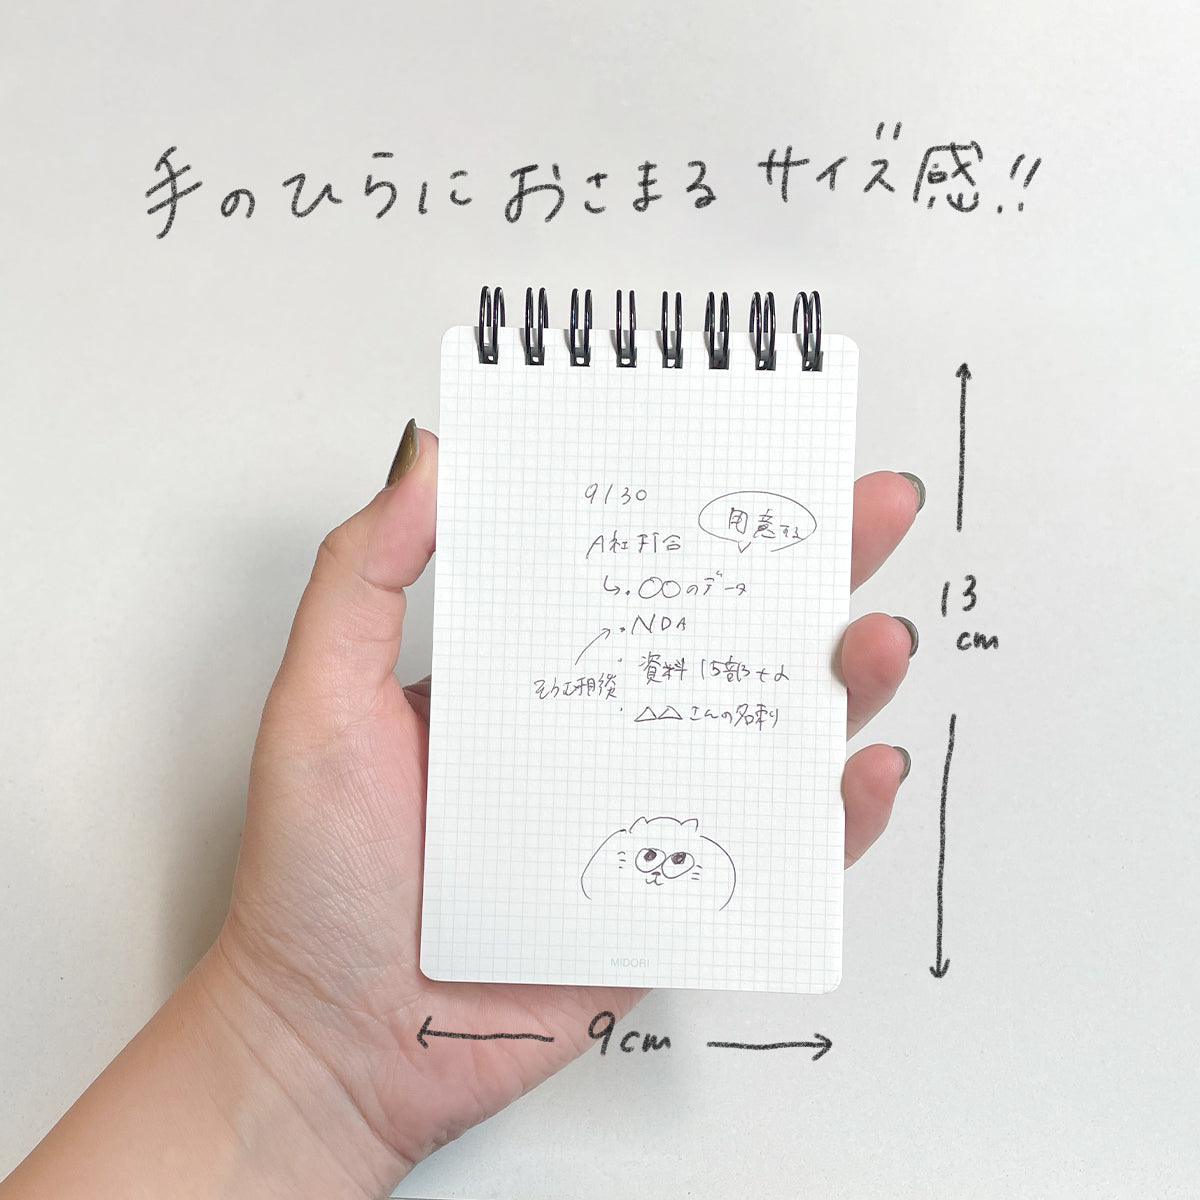 手のひらにおさまるサイズ感!!
9/30
用意する
A社打合
↳・〇〇のデータ
・NDA
・資料 15部+α
・△△さんの名刺
MIDORI
13
cm
9cm